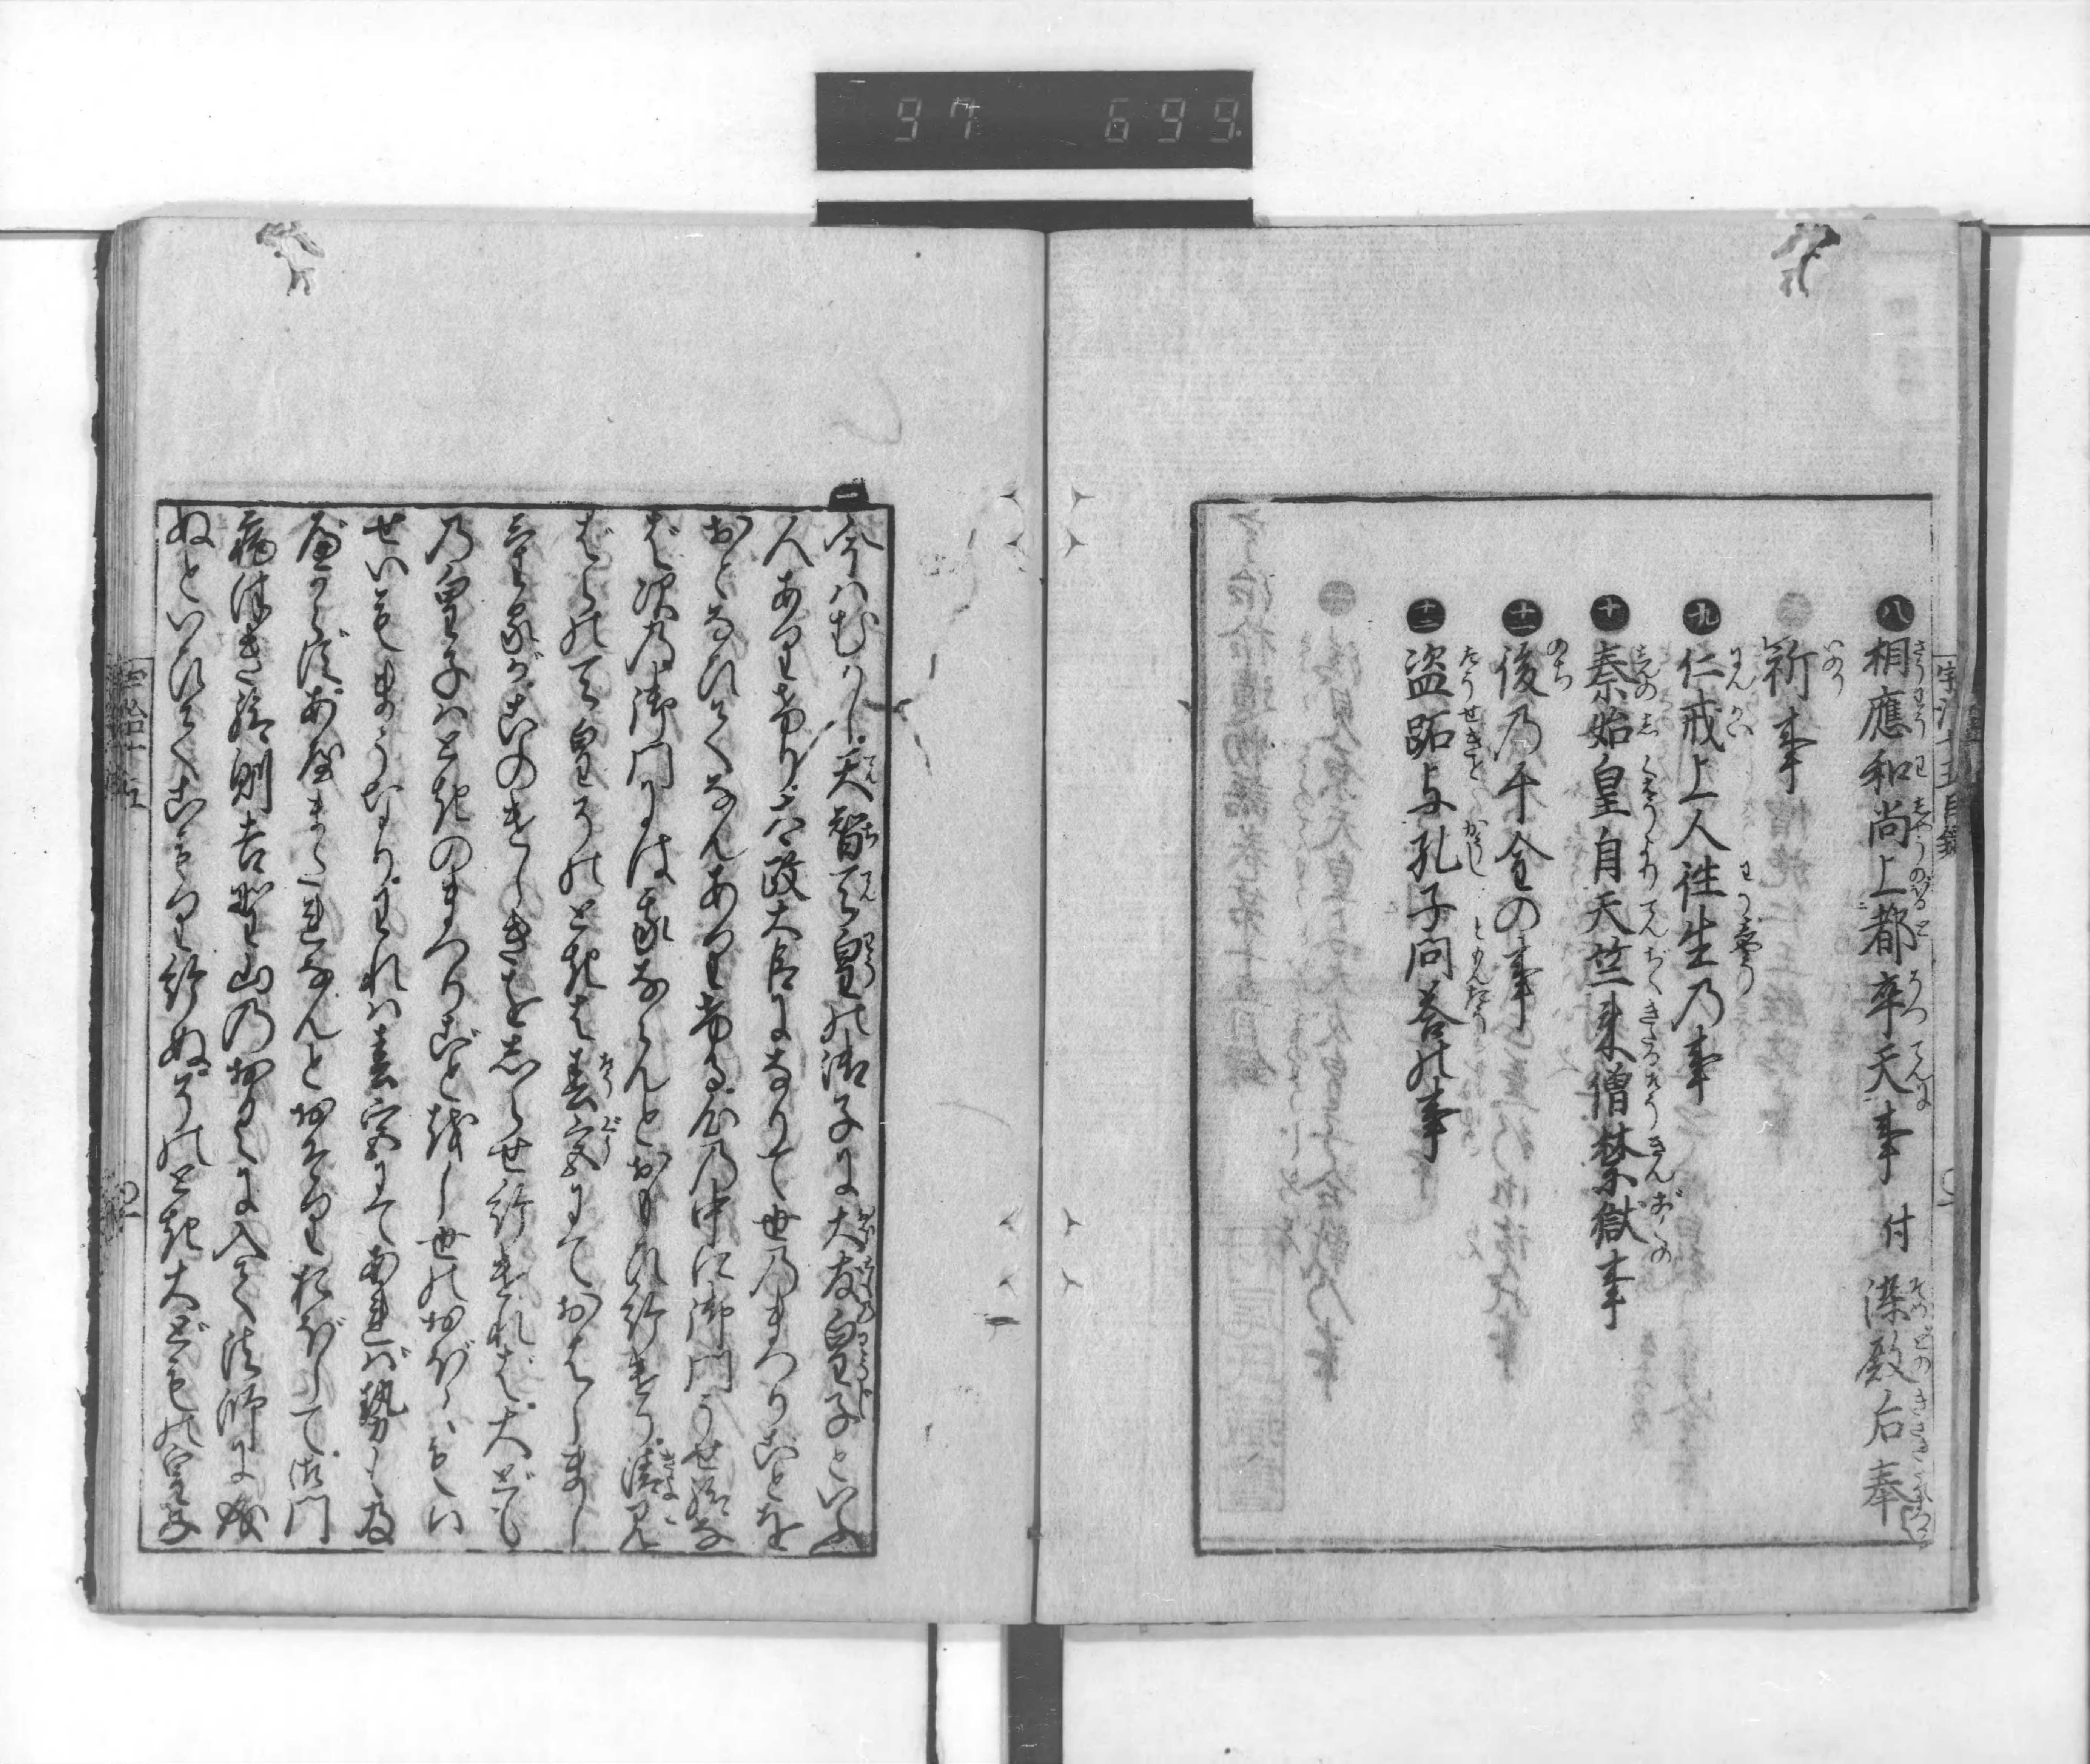 97 699
八 相應和尚上都卒天事 付 染殿后奉
祈事
九 仁戒上人往生乃事
十 秦始皇自天竺来僧禁獄事
十一 後乃千金の事
十二 盗跖与孔子問荅の事
一
今はむかし天智天皇の御子に大友皇子といふ
人ありけり太政大臣になりて世のまつりごとを
おこなひてなんありける心の中に御門うせ給な
ば次の御門には我ならんとおもひ給けり清見
ばらの天皇そのときは春宮にておはしまし
けるが此のけしきをしらせ給けれは大とも
乃皇子はときのまつりごとをし世のおぼえい
せいもまうなりわれは春宮にてあれば勢も及
べからずあやまたれなんとおそりおぼして御門
病つき給則吉野山乃おくに入て法師に成
ぬといひてこもり給ぬそのとき大ともの皇子